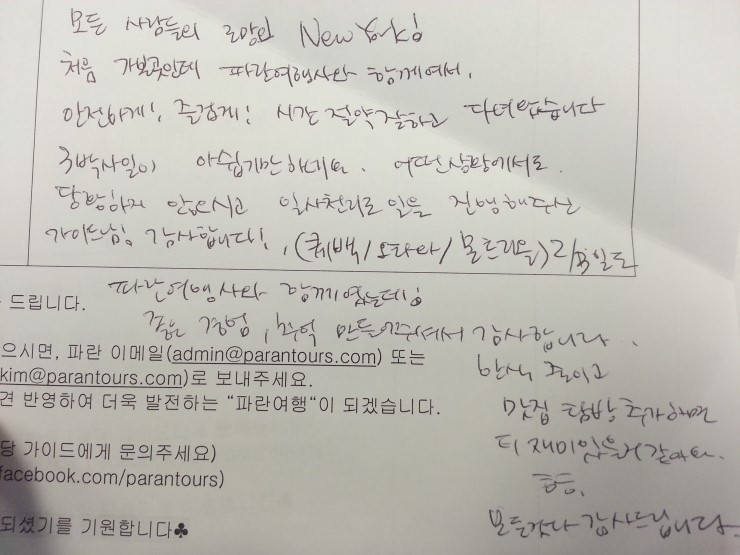 모든 사람들의 로망의 New York!
처음 가보곳인데 파란여행사와 함께여서,
안전하게!, 즐겁게! 시간 절약 잘하고 다녀왔습니다
3박4일이 아쉽기만 하네요. 어떠한 상황에서도
당황하지 않으시고 일사천리로 일을 진행해주신
가이드님! 감사합니다!, (퀘백/오타와/몬트리올)2/3일도
파란여행사와 함께였는데!
드립니다.
좋은 경험, 추억 만들어주셔서 감사합니다.
으시면, 파란 이메일(admin@parantours.com) 또는
한식 줄이고
kim@parantours.com)로 보내주세요.
맛집 탐방 추가하면
견 반영하여 더욱 발전하는 “파란여행“이 되겠습니다.
더 재미있을거 같아요.
당 가이드에게 문의주세요)
facebook.com/parantours)
모든것 다 감사드립니다.
되셨기를 기원합니다♣